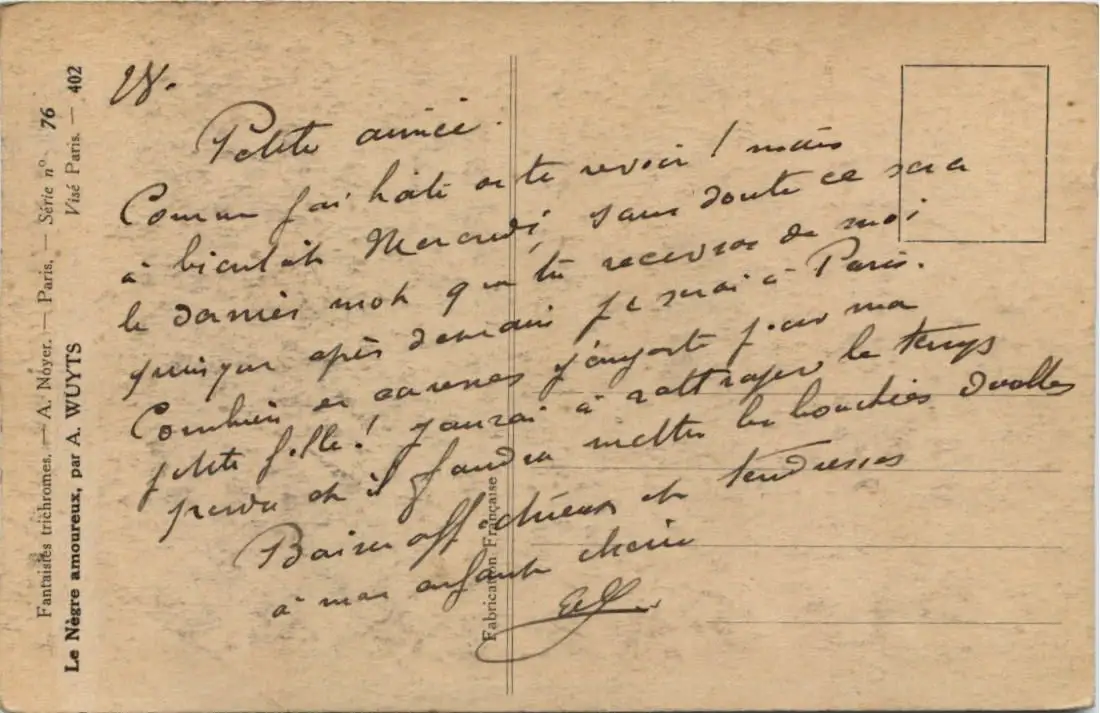 28.
Petite aimée.
Comme j'ai hâte de te revoir ! mais
à bientôt Mercredi, sans doute ce sera
le dernier mot que tu recevras de moi
puisque après demain je serai à Paris.
Combien de caresses j'emporte pour ma
petite fille ! j'aurai à rattraper le temps
perdu et il faudra mettre les bouchées doubles
Baisers affectueux et tendresses
à mon enfant chérie
Fantaisies trichromes. — A. Noyer. — Paris. — Série nº 76
Le Nègre amoureux, par A. WUYTS Visé Paris. — 402
Fabrication Française